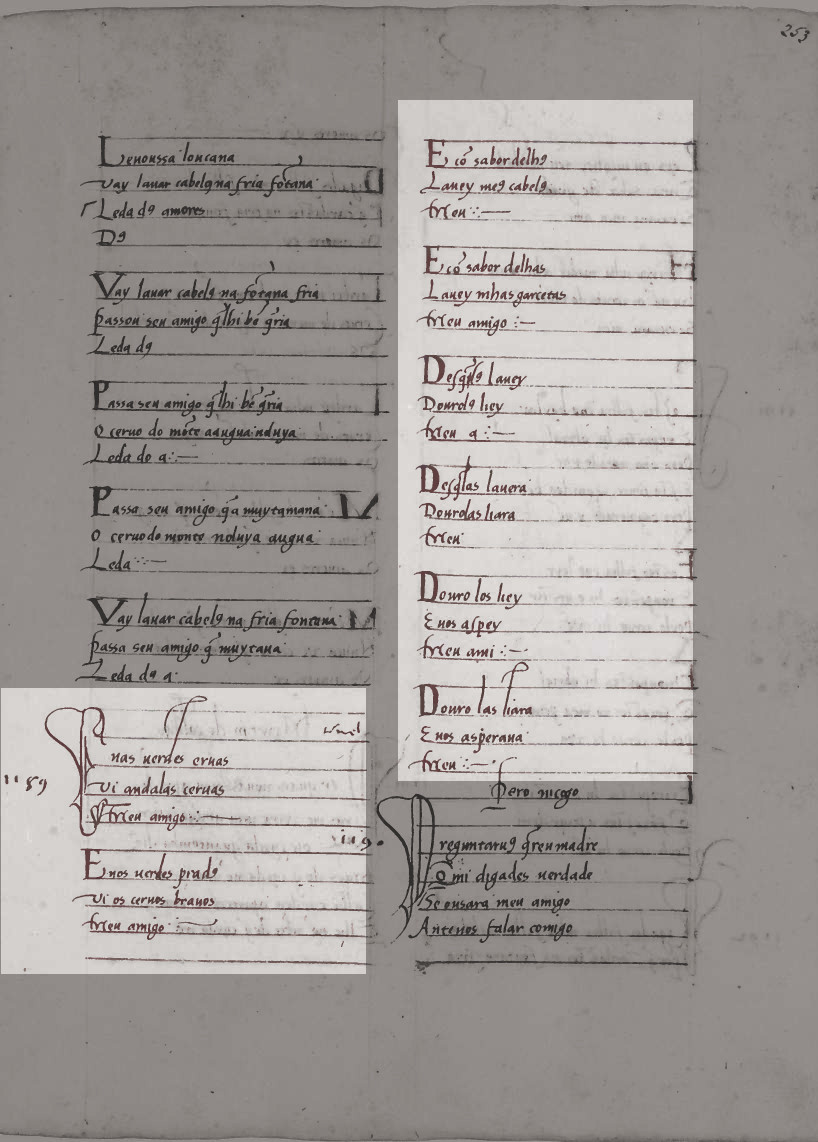 253
Lenoussa loucana
vay lauar cabelꝯ na fria fōtana
Leda dꝯ amores
Dꝯ
Vay lauar cabelꝯ na fōtana fria
passou seu amigo
Leda dꝯ
Passa seu amigo
o ceruo do mōte aaugua uoluya
Leda do a :—
Passa seu amigo muytamana
o ceruo do monte uoluya augua
Leda :—
Vay lauar cabelꝯ na fria fontana
passa seu amigo
Leda dꝯ a
nas uerdes eruas
1189
vi andalas ceruas
meu amigo :—
Enos uerdes pradꝯ
vi os ceruos brauos
meu amigo :—
E cō sabor delhꝯ
Lauey meꝯ cabelꝯ
meu :—
E cō sabor delhas
Lauey mhas garcetas
meu amigo :—
Des lauey
Dourolꝯ liey
meu a :—
Des lauara
Dourolas liara
meu
Douro los liey
E uos aspey
meu ami :—
Douro las liara
E uos asperaua
meu :—
Pero meogo
1190
Preguntaruꝯ madre
mi digades uerdade
Se ousara meu amigo
Anteuos falar comigo